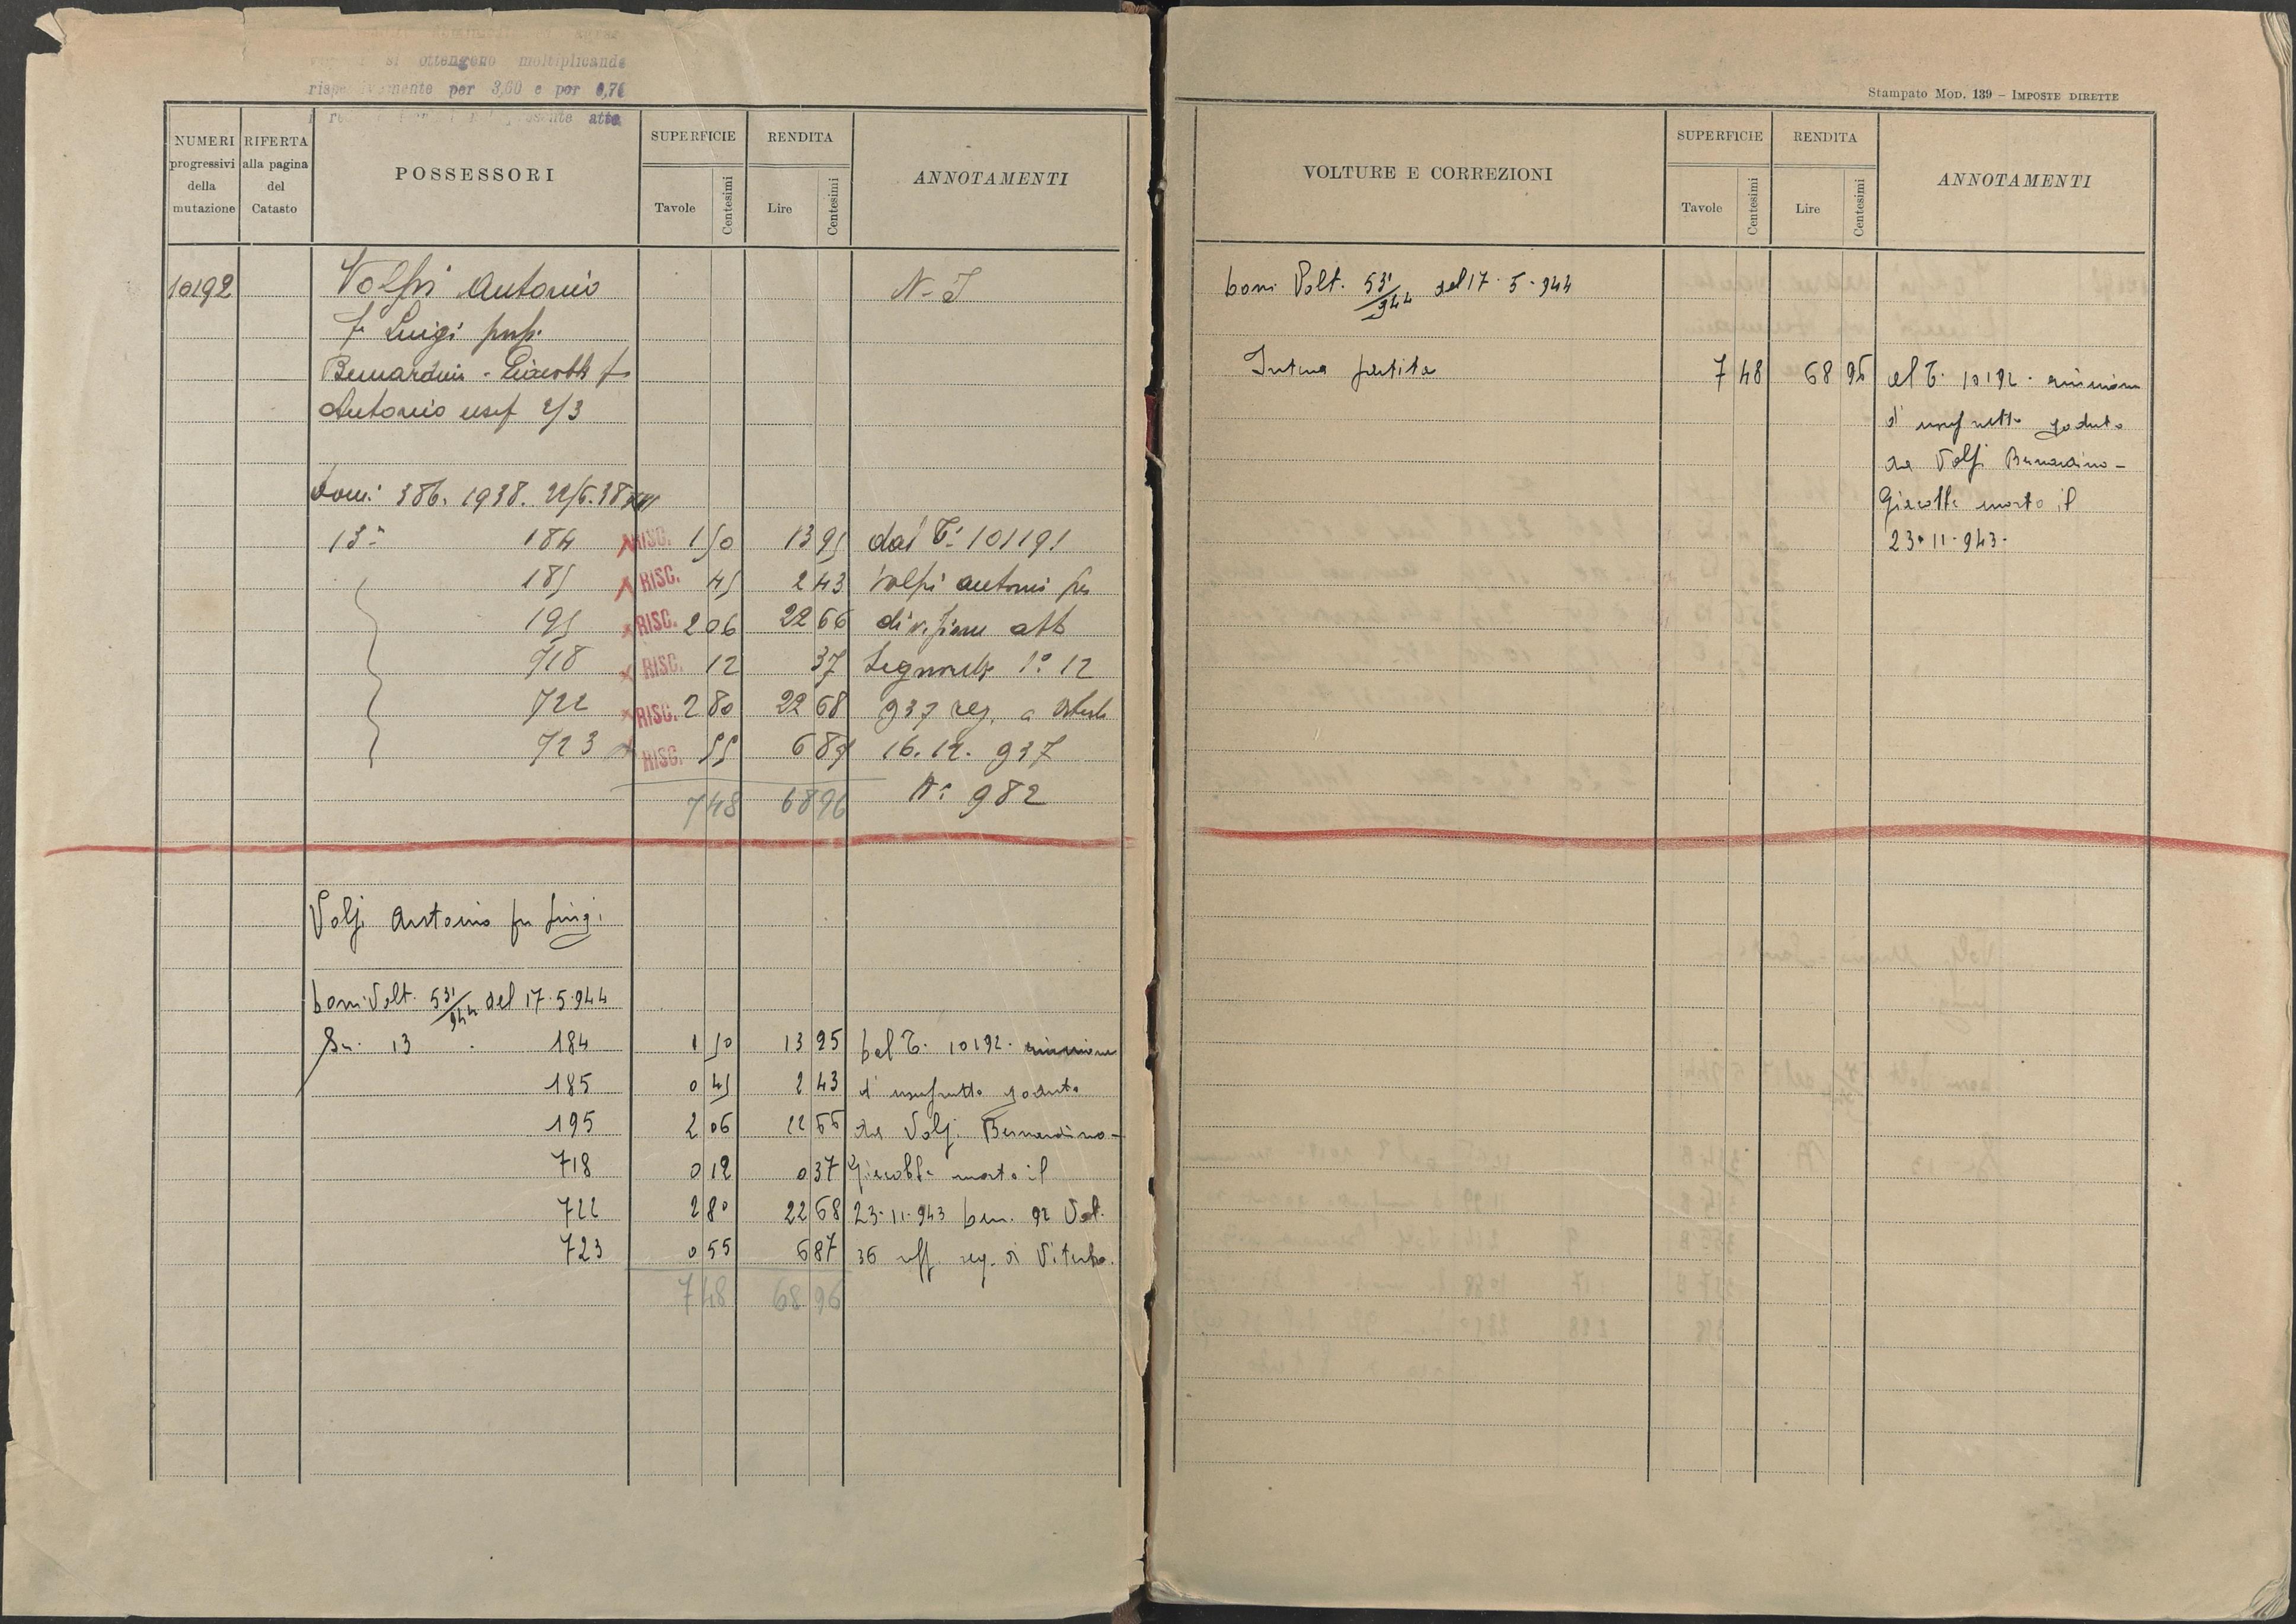 si ottengono moltiplicando
rispettivamente per 3,60 e por 0,76
presente atto
NUMERI progressivi della mutazione
RIFERTA alla pagina del Catasto
POSSESSORI
SUPERFICIE
Tavole
Centesimi
RENDITA
Lire
Centesimi
ANNOTAMENTI
10192 Volpi Antonio N-I
f Luigi prop.
Bernardino - Giacobbe f
Antonio usuf 2/3
dom: 386. 1938. 22/6.38
13ª 184 RISC. 1 50 13 95 dal T: 10119 1
185 RISC. 45 2 43 Volpi Antonio per
195 RISC. 2 06 22 66 divisione atto
718 RISC. 12 37 Segnorelli 1º 12
722 RISC. 2 80 22 68 937 reg. a Viterbo
723 RISC. 55 6 87 16. 12. 937
7 48 68 96 Nº 982
Volpi Antonio fu Luigi
dom. Volt. 531/944 del 17.5.944
Sez. 13 184 1 50 13 95 dal T. 10192. riunione
185 0 45 2 43 d'usufrutto goduto
195 2 06 22 66 da Volpi Bernardino-
718 0 12 0 37 Giacobbe morto il
722 2 80 22 68 23.11.943 den. 92 Vol.
723 0 55 6 87 36 uff. reg. di Viterbo.
7 48 68 96
Stampato Mod. 139 – Imposte dirette
VOLTURE E CORREZIONI
SUPERFICIE
Tavole
Centesimi
RENDITA
Lire
Centesimi
ANNOTAMENTI
dom. Volt. 531/944 del 17.5.944
Intera partita 7 48 68 96 al T. 10192. riunione
d'usufrutto goduto
da Volpi Bernardino-
Giacobbe morto il
23.11.943.